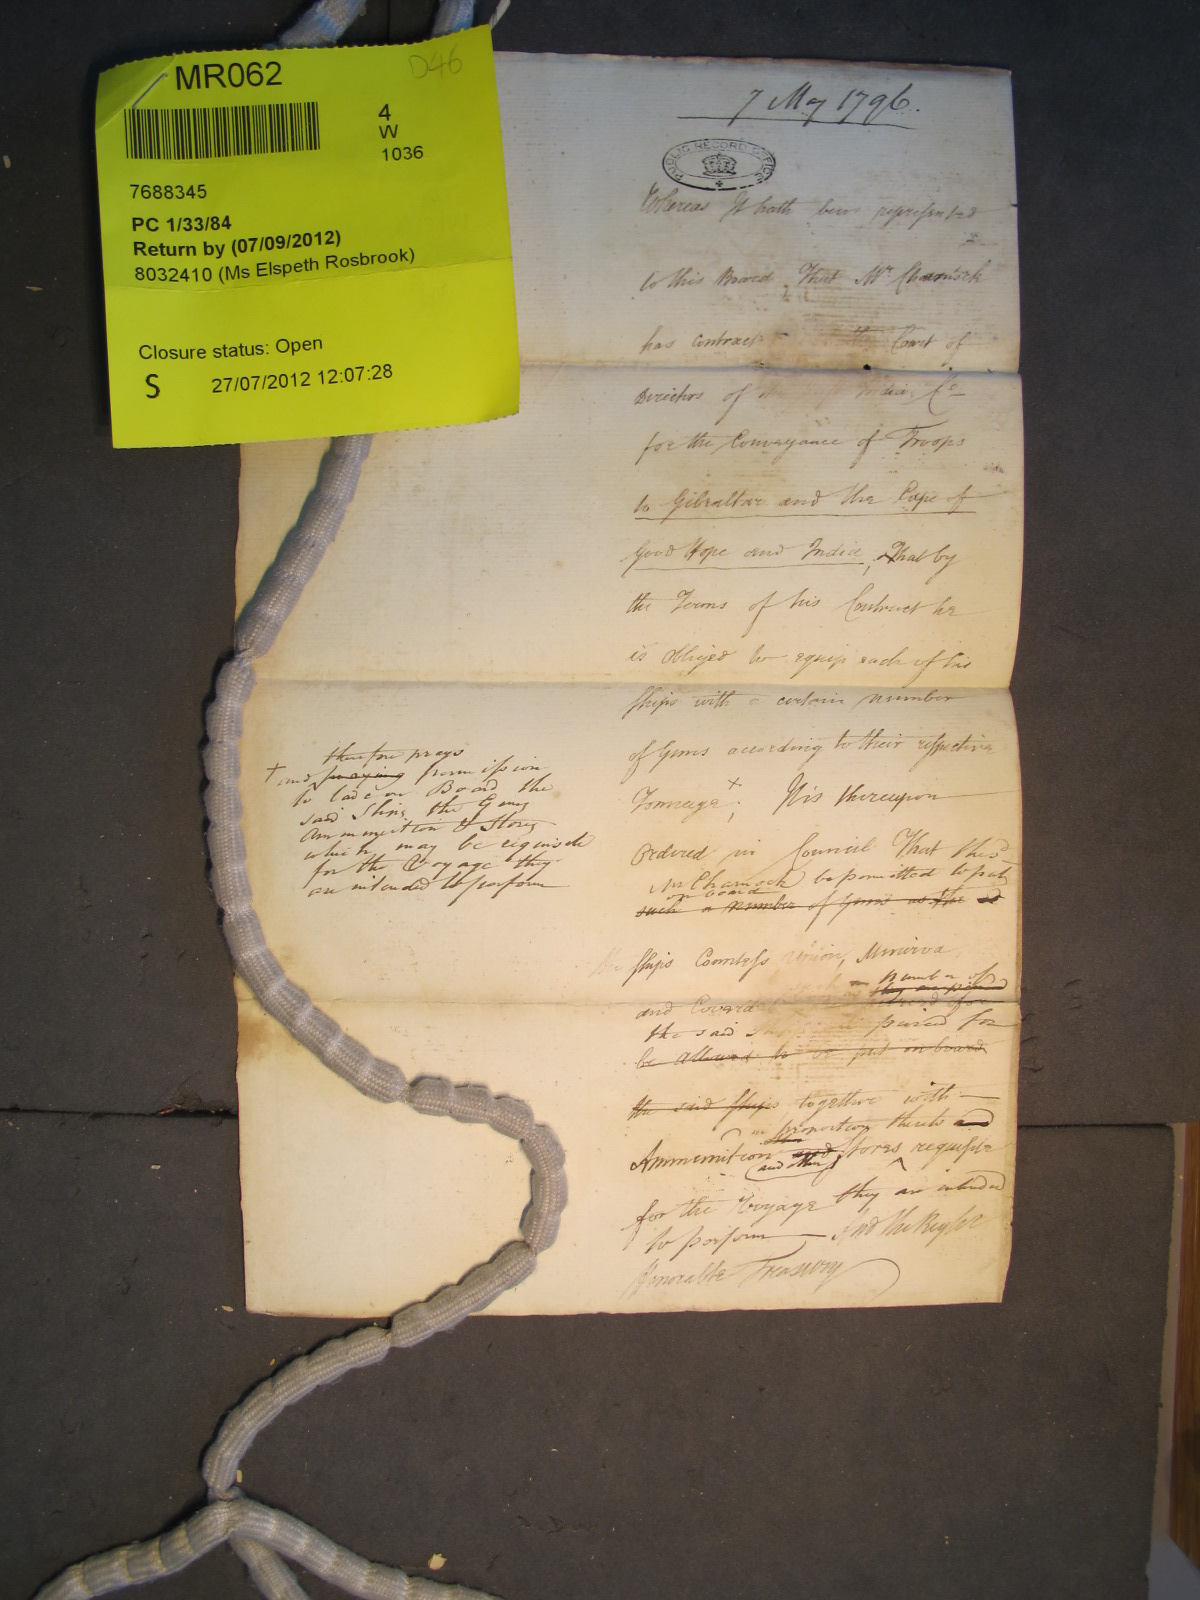 MR062
D46
4
W
1036
7688345
PC 1/33/84
Return by (07/09/2012)
8032410 (Ms Elspeth Rosbrook)
Closure status: Open
S 27/07/2012 12:07:28
7 May 1796.
PUBLIC RECORD OFFICE
Whereas It hath been represented
to this Board That Mr. Charnock
has contract the Court of
Directors of India Co
for the Conveyance of Troops
to Gibraltar and the Cape of
Good Hope and India, That by
the Terms of his Contract he
is obliged to equip each of his
ships with a certain number
of Guns according to their respective
Tonnage +; It is thereupon
Ordered in Council That the sd
Mr Charnock be permitted to put
on board
such a number of Guns as the
ships Countess Union, Minerva
number of
and
the said for
be allowed to be put on board
the said Ships together with
in proportion thereto and
Ammunition and Stores requisite
and other
for the Voyage they are intended
to perform — And the Right
Honorable Treasury
therefore prays
+ and praying permission
to lade on Board the
said Ships the Guns
Ammunition & Stores
which may be requisite
for the Voyage they
are intended to perform